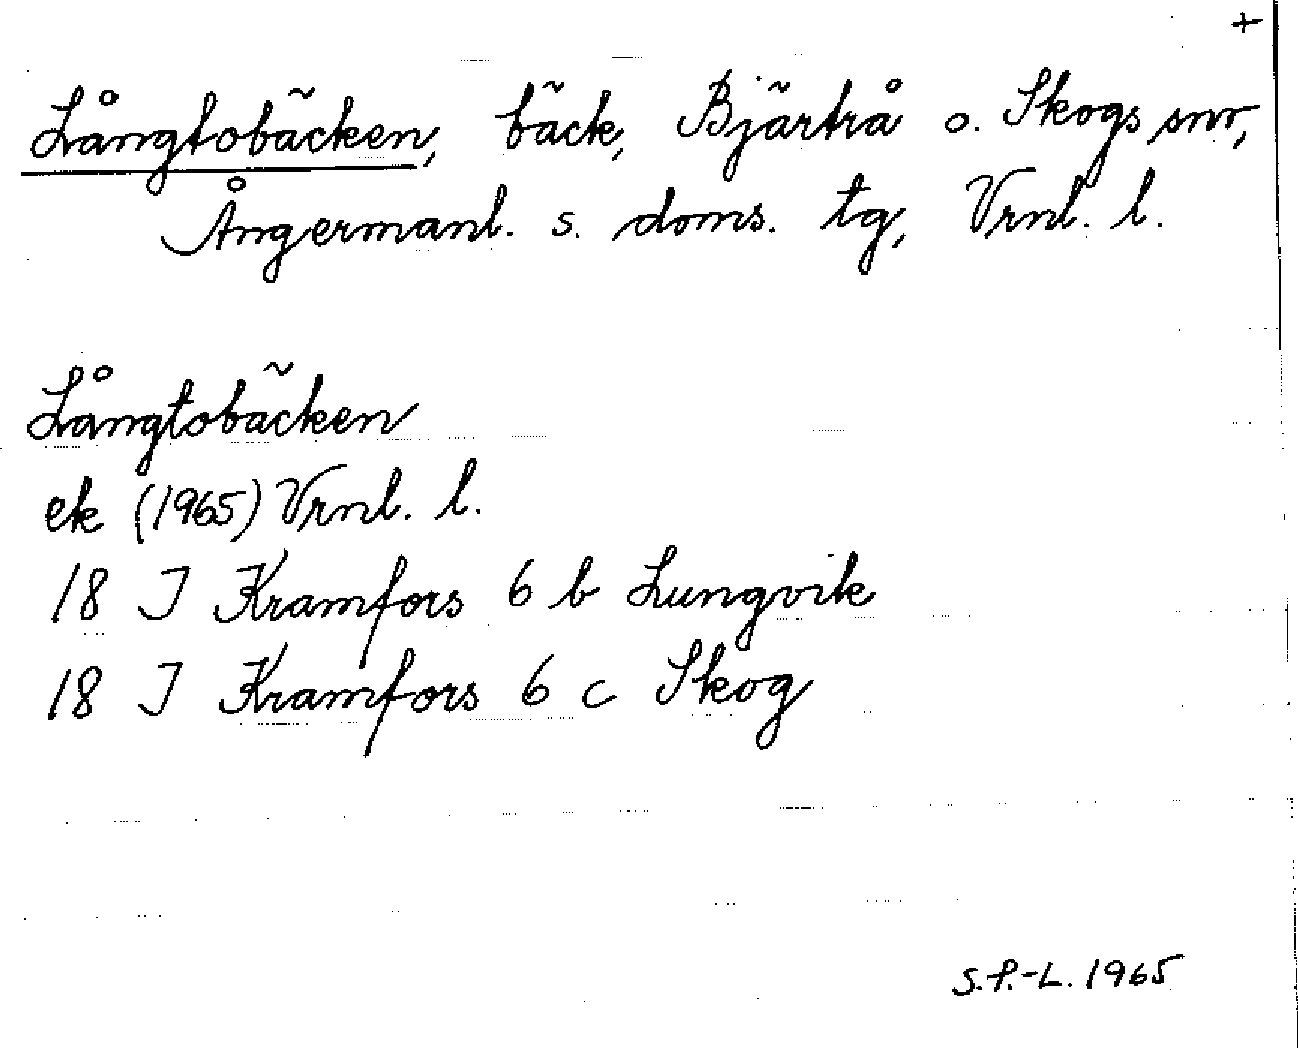 +
Långtobäcken, bäck, Bjärtrå o. Skogs snr,
Ångermanl. s. doms. tg, Vrnl. l.
Långtobäcken
ek (1965) Vrnl. l.
18 I Kramfors 6 b Lungvik
18 I Kramfors 6 c Skog
S.P.-L. 1965